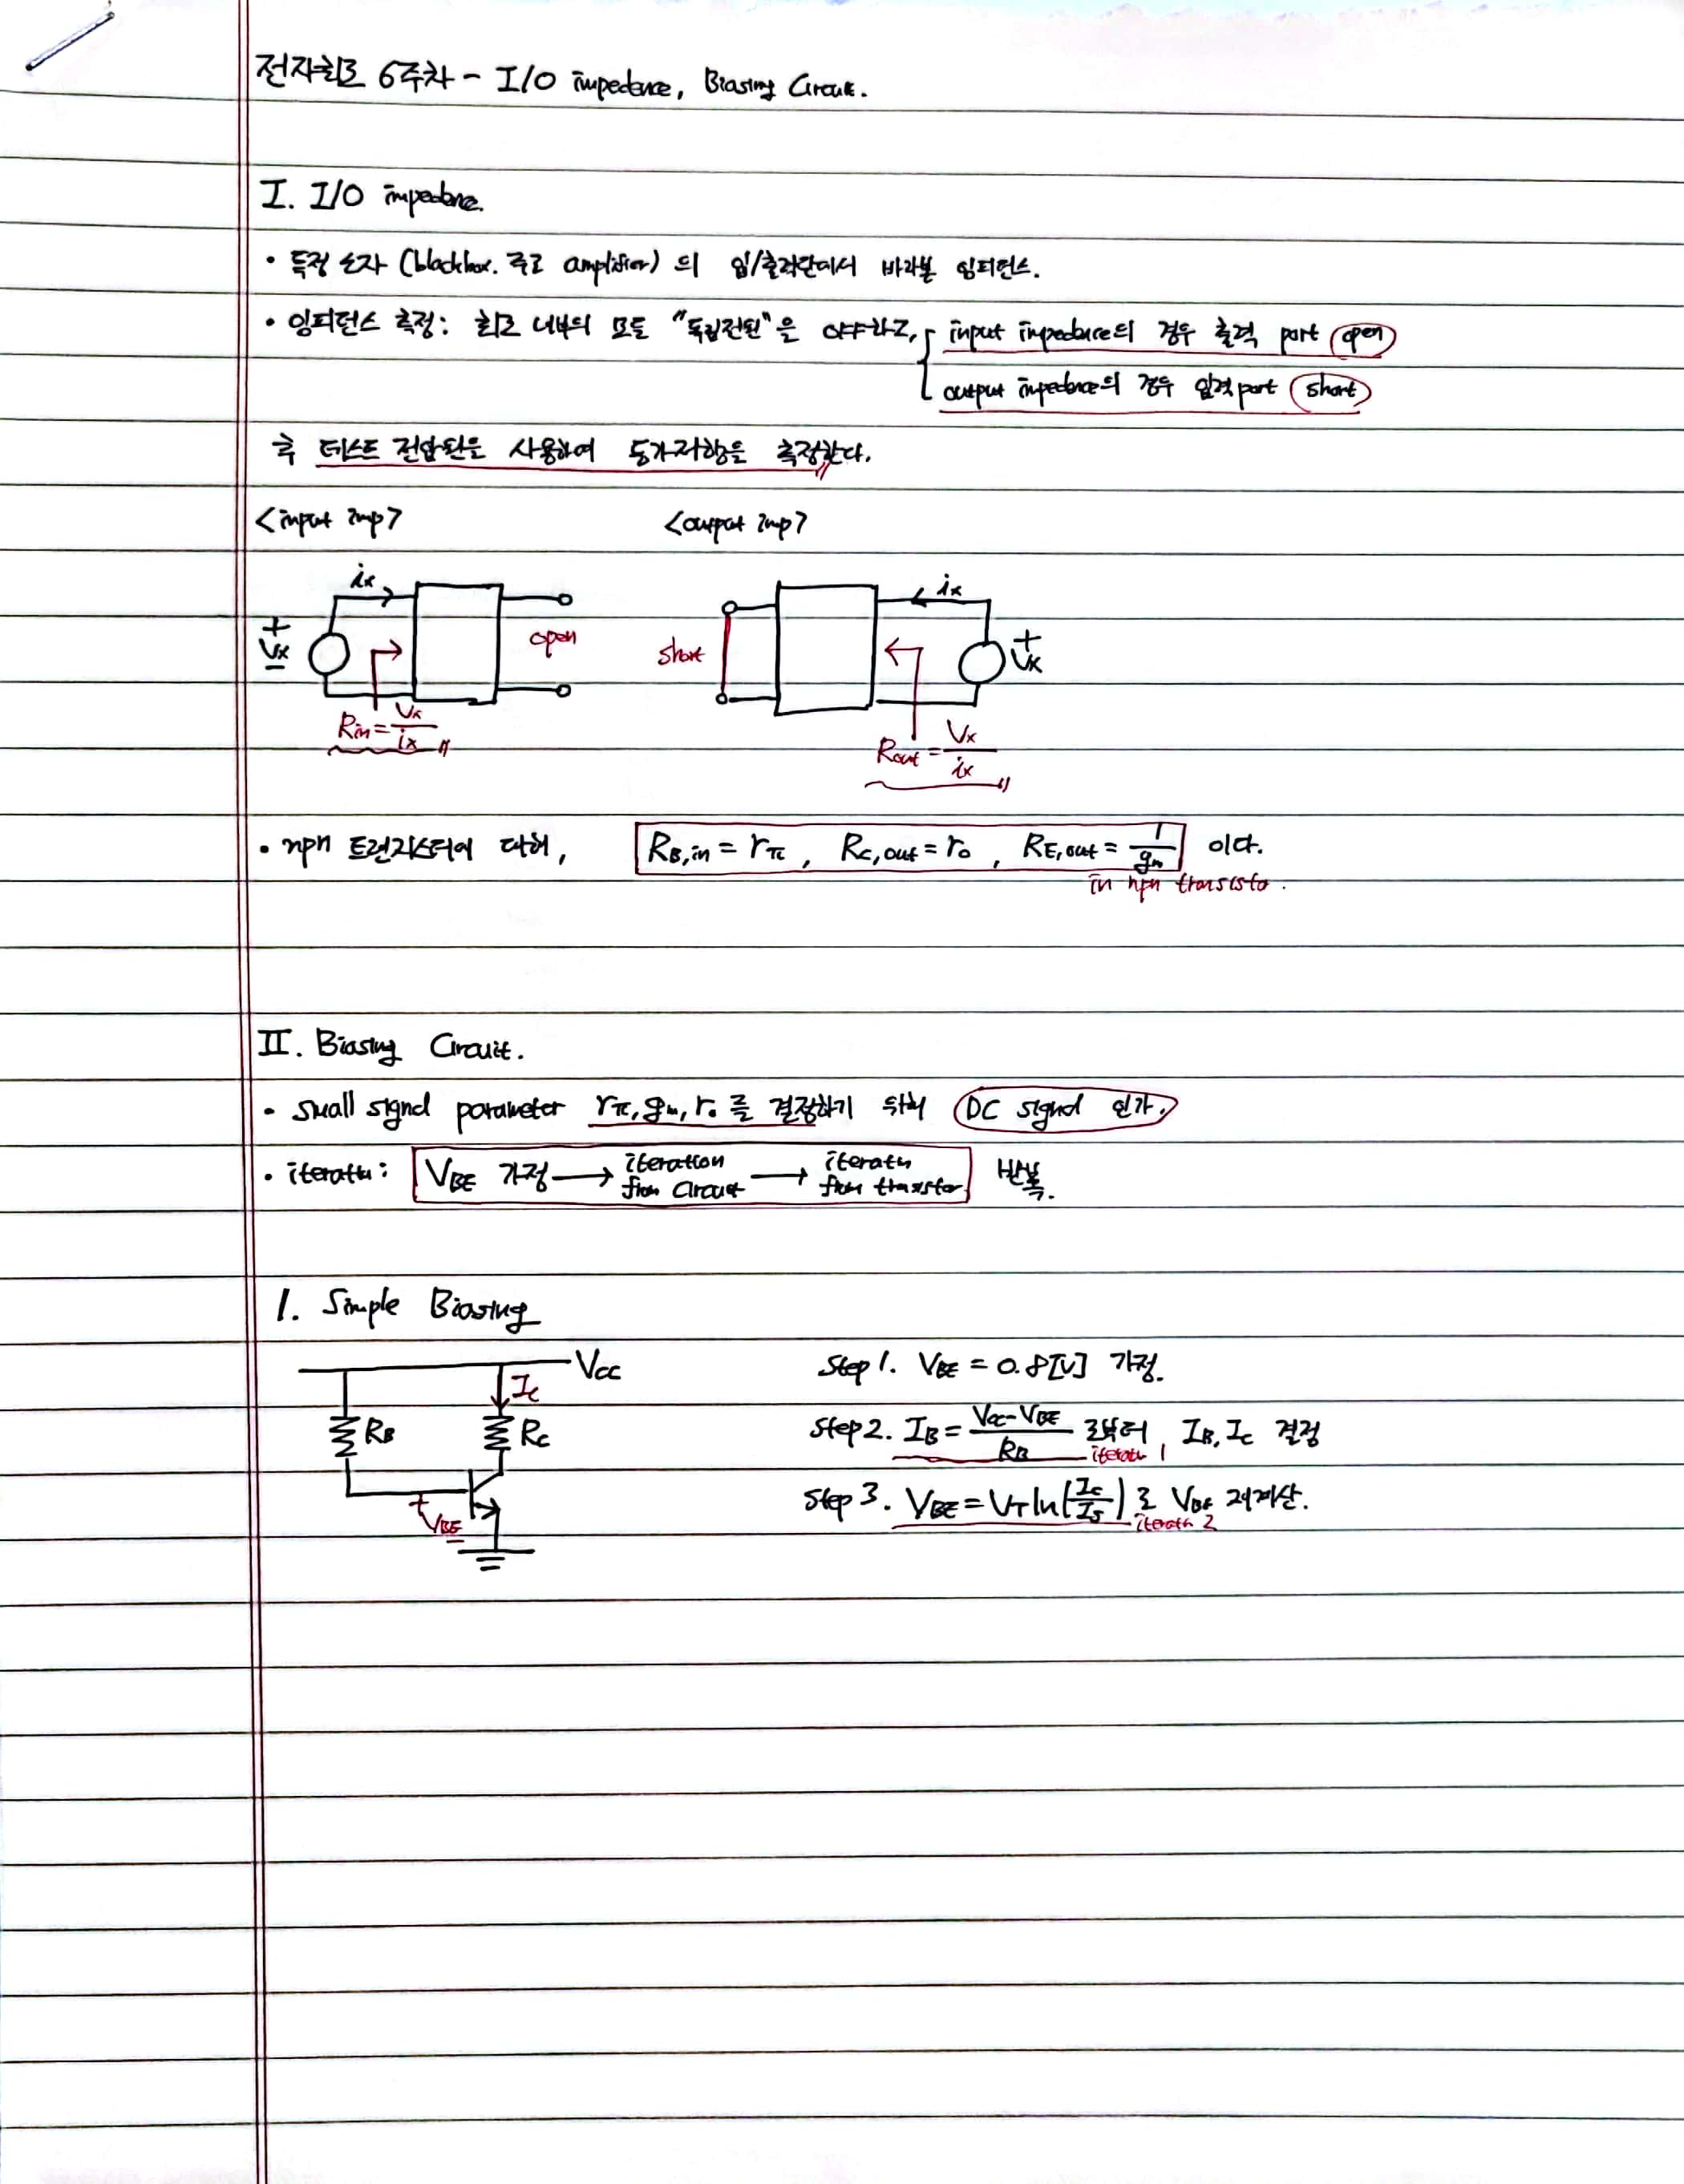 전자회로 6주차 - I/O impedance, Biasing Circuit.
I. I/O impedance.
• 특정 소자 (blackbox. 주로 amplifier) 의 입/출력단에서 바라본 임피던스.
• 임피던스 측정: 회로 내부의 모든 "독립전원"은 off하고, input impedance의 경우 출력 port open
output impedance의 경우 입력 port short
후 테스트 전압원을 사용하여 등가저항을 측정한다.
<input imp> <output imp>
ix ix
+ Vx - open short + Vx
Rin = Vx/ix Rout = Vx/ix
• npn 트랜지스터에 대해, RB,in = rπ, RC,out = ro, RE,out = 1/gm 이다.
in npn transistor.
II. Biasing Circuit.
• small signal parameter rπ, gm, ro 를 결정하기 위해 DC signal 인가.
• iteration: VBE 가정 → iteration from circuit → iteration from transistor 반복.
1. Simple Biasing
VCC Step 1. VBE = 0.8[V] 가정.
IC
RB RC Step 2. IB = (VCC-VBE)/RB 로부터 IB, IC 결정
iteration 1
+ VBE - Step 3. VBE = VT ln(IC/IS) 로 VBE 재계산.
iteration 2